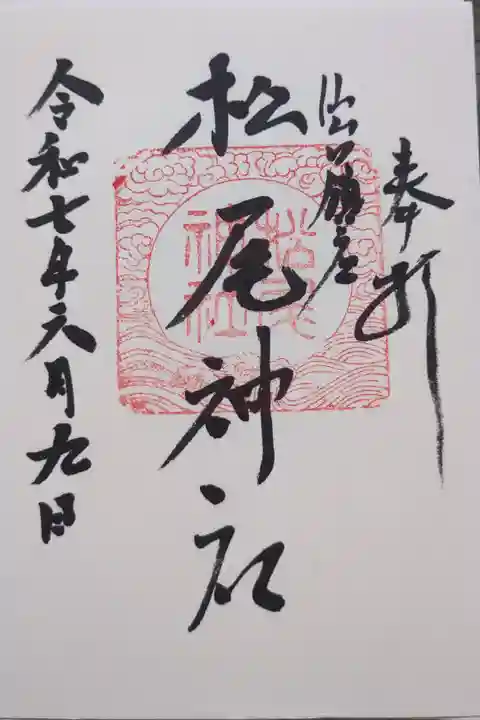 奉拝
松尾神社
令和七年六月九日
松尾
神社